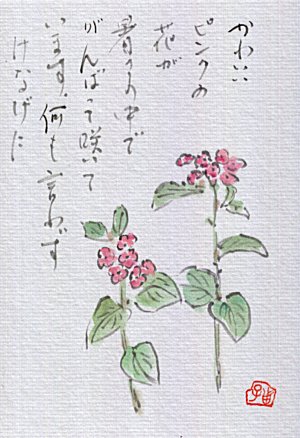 かわいい
ピンクの
花が
暑さの中で
がんばって咲いて
います、何も言わず
けなげに